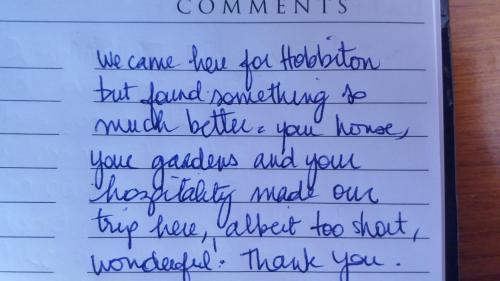 COMMENTS
We came here for Hobbiton
but found something so
much better: your house,
your gardens and your
hospitality made our
trip here, albeit too short,
wonderful! Thank you.